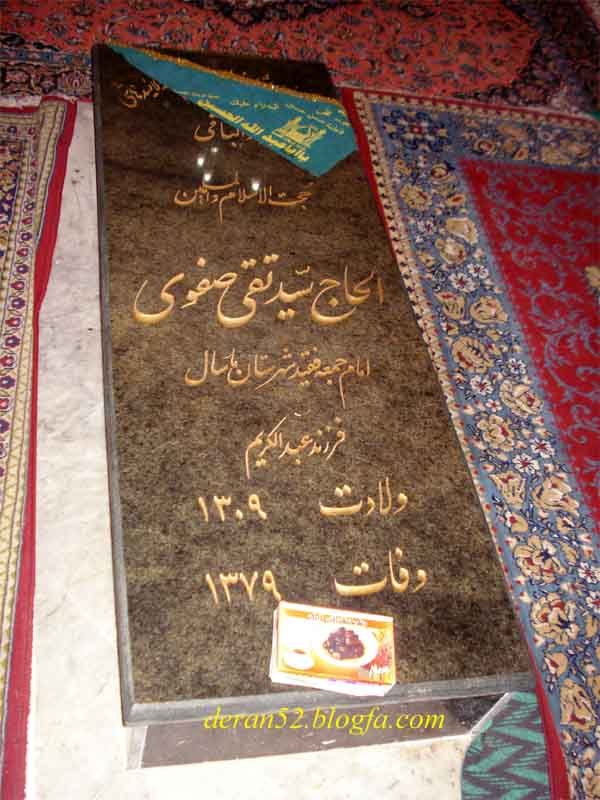 حجت الاسلام والمسلمین
الحاج سیّد تقی صفوی
امام جمعه فقید شهرستان ماسال
فرزند عبدالکریم
ولادت ۱۳۰۹
وفات ۱۳۷۹
deran52.blogfa.com